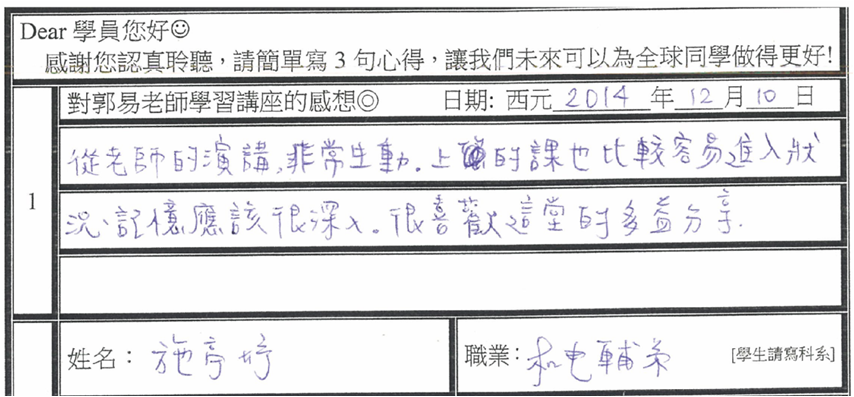 Dear 學員您好☺
感謝您認真聆聽，請簡單寫 3 句心得，讓我們未來可以為全球同學做得更好!
對郭易老師學習講座的感想◎ 日期: 西元 2014 年 12 月 10 日
1
從老師的演講,非常生動。上的課也比較容易進入狀
況、記憶應該很深入。很喜歡這堂的多益分享.
姓名： 施亭妤
職業： 輔 [學生請寫科系]